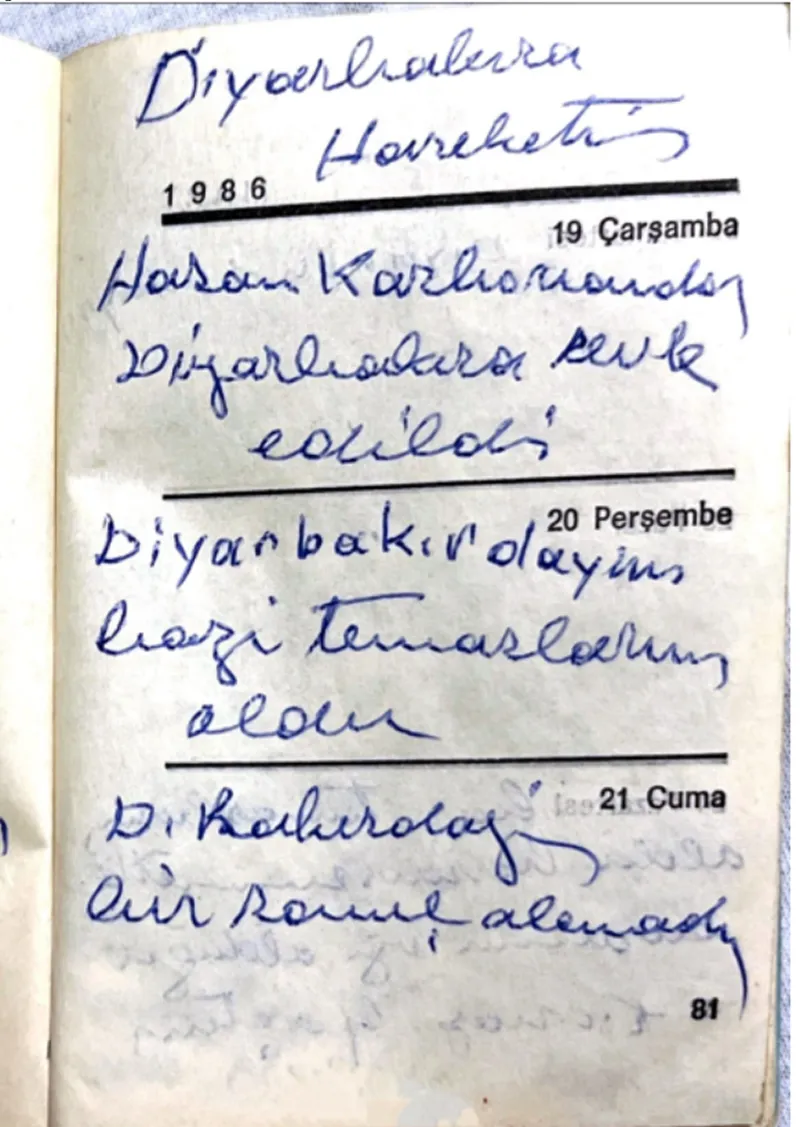 Diyarbakıra
Hareketim
1986
19 Çarşamba
Hasan Karkonandan
Diyarbakıra sevk
edildi
20 Perşembe
Diyarbakırdayım
bazı temaslarım
oldu
21 Cuma
D. Bakırdayım
bir sonuç alamadım
81